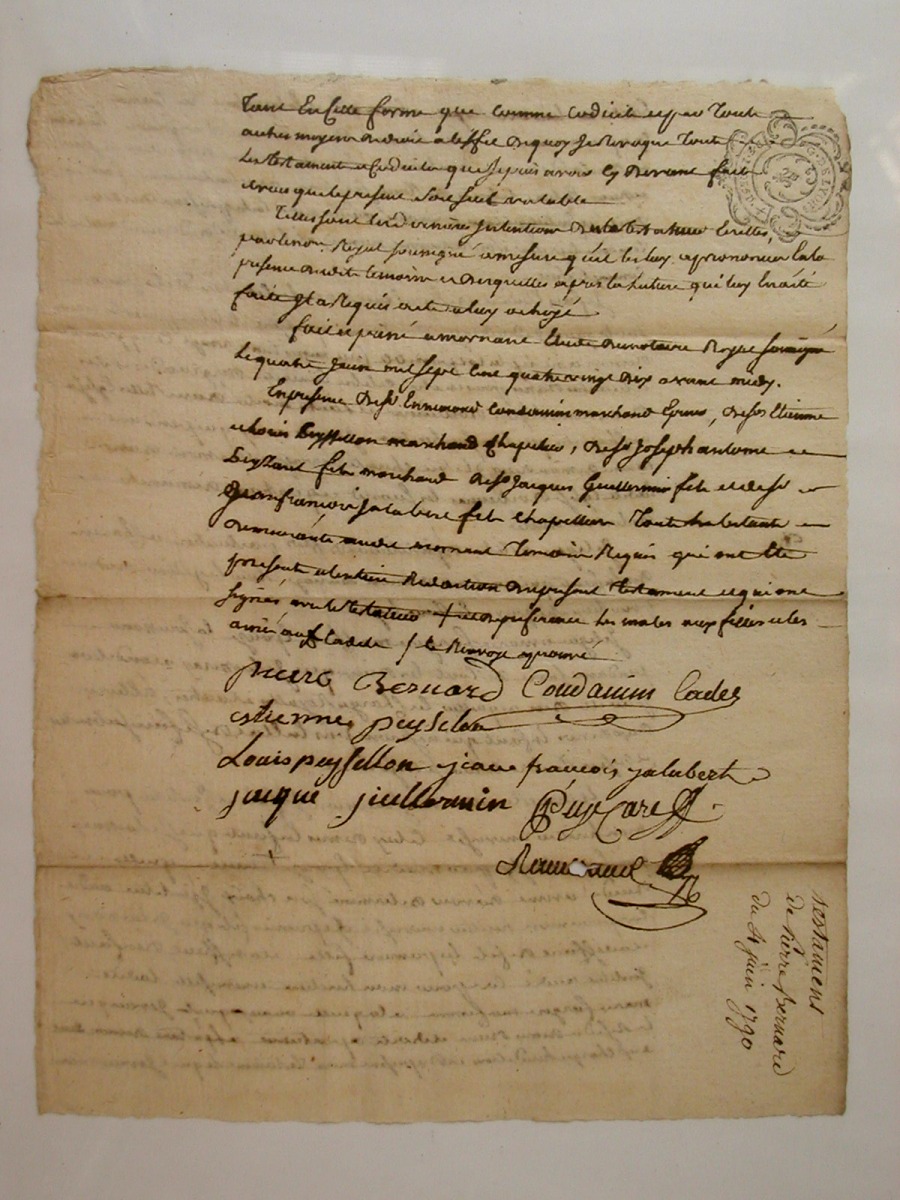 tant En cette forme que comme codicile et par toute
autres moyens de droit a leffet de quoy Je Revoque tout
les testament et Codiciles que Je puis avoir cy devant fait
vouus que le present soit seul valable
Telles sont les dernieres Intentions de testateur Ecrittes,
par le not. Royal soussigné a mesure qu'il les luy a prononcer En la
presence desdits temoins et desquelles apres la lecture qui luy En a été
faite Il a Requis acte a luy octroyé
fait et passé a mornant Etude du notaire Royal soussigné
le quatre Juin mil sept Cent quatre vingt dix avant midy.
En presence de sr Ennemond Condamin marchand Epicier, de srs Etienne
et Louis Peyssellon marchand Chapelier, de sr Joseph antoine
Peyzaret fils marchand de sr Jacques Guillermin fils et de sr
Jean françois Jalabert fils Chapellier tout habitant
demeurants audit mornant temoins Requis qui ont Eté
present a lentiere Redaction du present testament et qui ont
signés avec le testateur + et de preference les males aux filles et les
ainé au Cadet / le Renvoy aprouvé
pierre Bernard Condamin Cadet
estienne peysselon
Louis peyssellon jean francois jalabert
jacque guillermin Peyzaret
testament
de Pierre Bernard
du 4 juin 1790